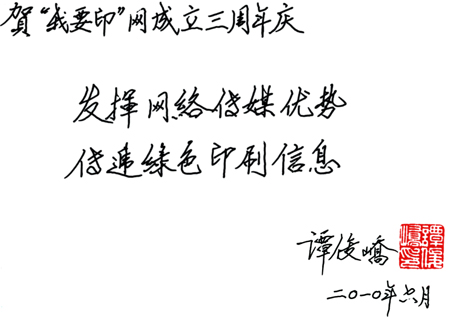 贺“我要印”网成立三周年庆
发挥网络传媒优势
传递绿色印刷信息
谭俊峤
二〇一〇年六月